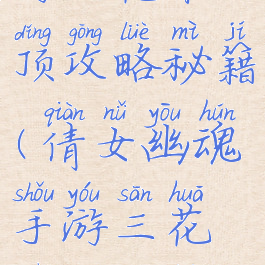 dǐng gōng lüè mì jí
顶攻略秘籍
qiàn nǚ yōu hún
(倩女幽魂
shǒu yóu sān huā
手游三花